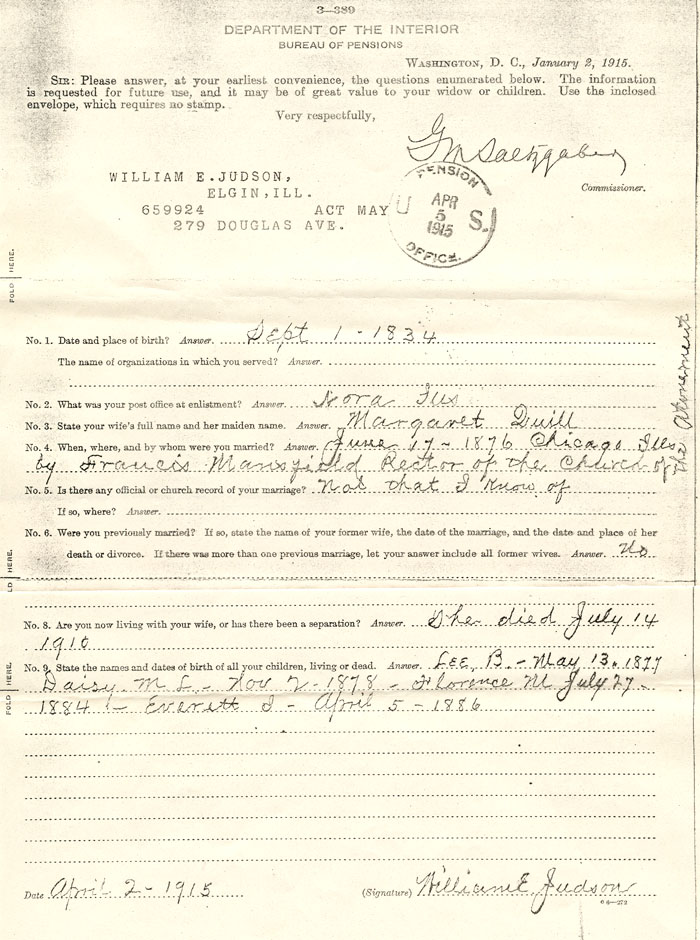 3—389
DEPARTMENT OF THE INTERIOR
BUREAU OF PENSIONS
WASHINGTON, D. C., January 2, 1915.
SIR: Please answer, at your earliest convenience, the questions enumerated below. The information
is requested for future use, and it may be of great value to your widow or children. Use the inclosed
envelope, which requires no stamp.
Very respectfully,
G M Saltzgaber
Commissioner.
WILLIAM E.JUDSON,
ELGIN,ILL.
659924 ACT MAY
279 DOUGLAS AVE.
PENSION
U APR S.
5
1915
OFFICE.
FOLD HERE.
No. 1. Date and place of birth? Answer. Sept 1 - 1834
The name of organizations in which you served? Answer.
No. 2. What was your post office at enlistment? Answer. Nora Ills
No. 3. State your wife's full name and her maiden name. Answer. Margaret Quill
No. 4. When, where, and by whom were you married? Answer. June 17 - 1876 Chicago Ills
by Francis Mansfield Rector of the Church of
the Atonement
No. 5. Is there any official or church record of your marriage? Not that I know of
If so, where? Answer.
No. 6. Were you previously married? If so, state the name of your former wife, the date of the marriage, and the date and place of her
death or divorce. If there was more than one previous marriage, let your answer include all former wives. Answer. No
LD HERE.
No. 8. Are you now living with your wife, or has there been a separation? Answer. She died July 14
1910
No. 9. State the names and dates of birth of all your children, living or dead. Answer. LEE, B. - May 13. 1877
Daisy M L - Nov 2 - 1878 - Florence M July 27 -
1884 - Everett I - April 5 - 1886
FOLD HERE.
Date April 2 - 1915 (Signature) William E Judson
6—272